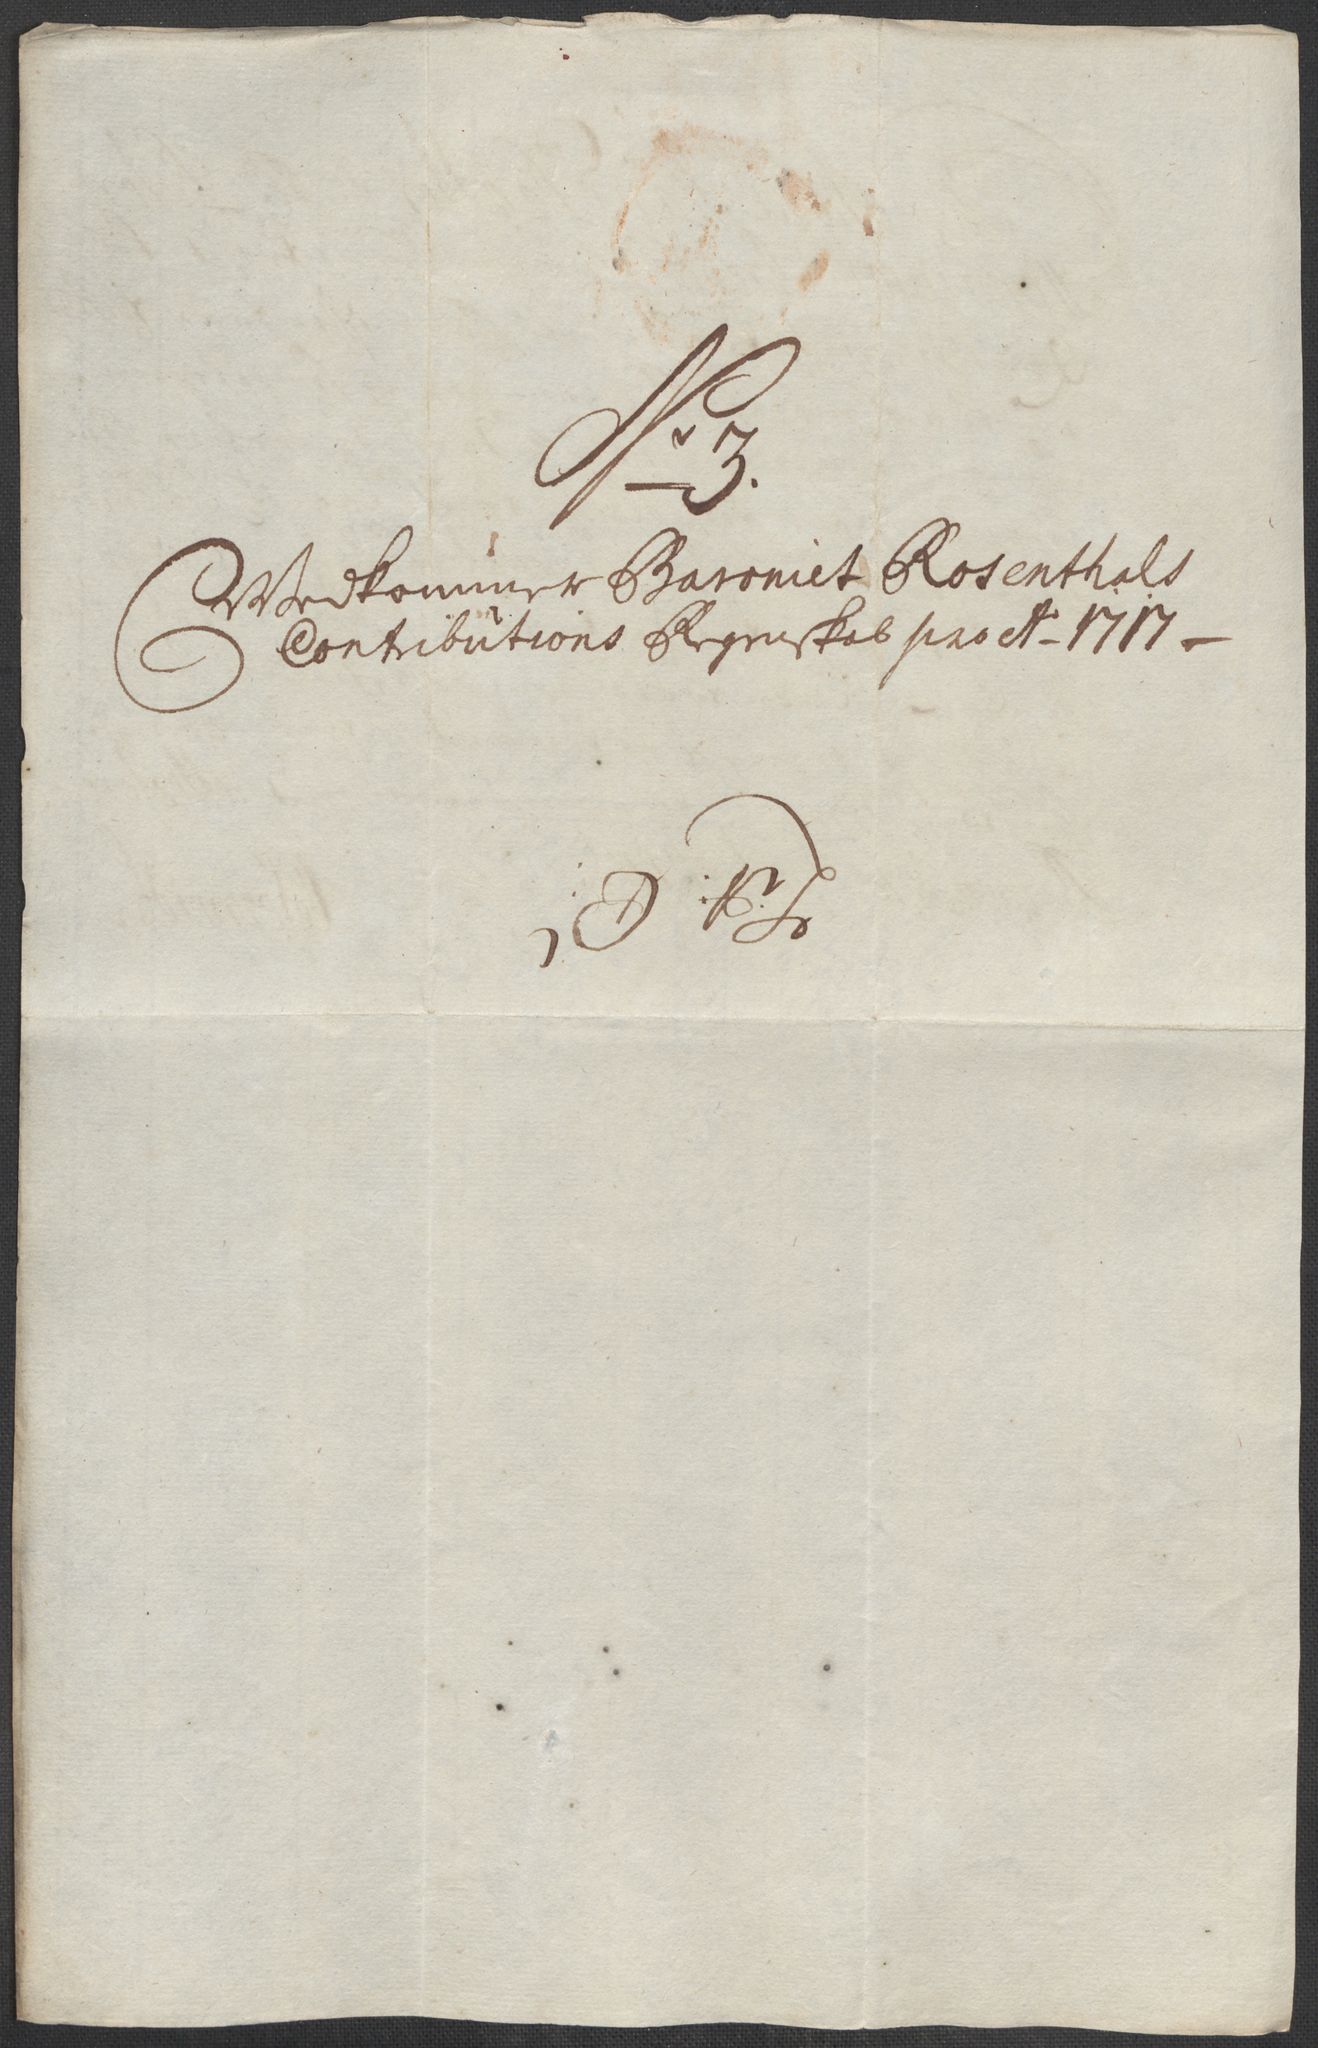 No 3.
Vedkommer Baroniet Rosenthals
Contributions Regenskab pro Ao 1717